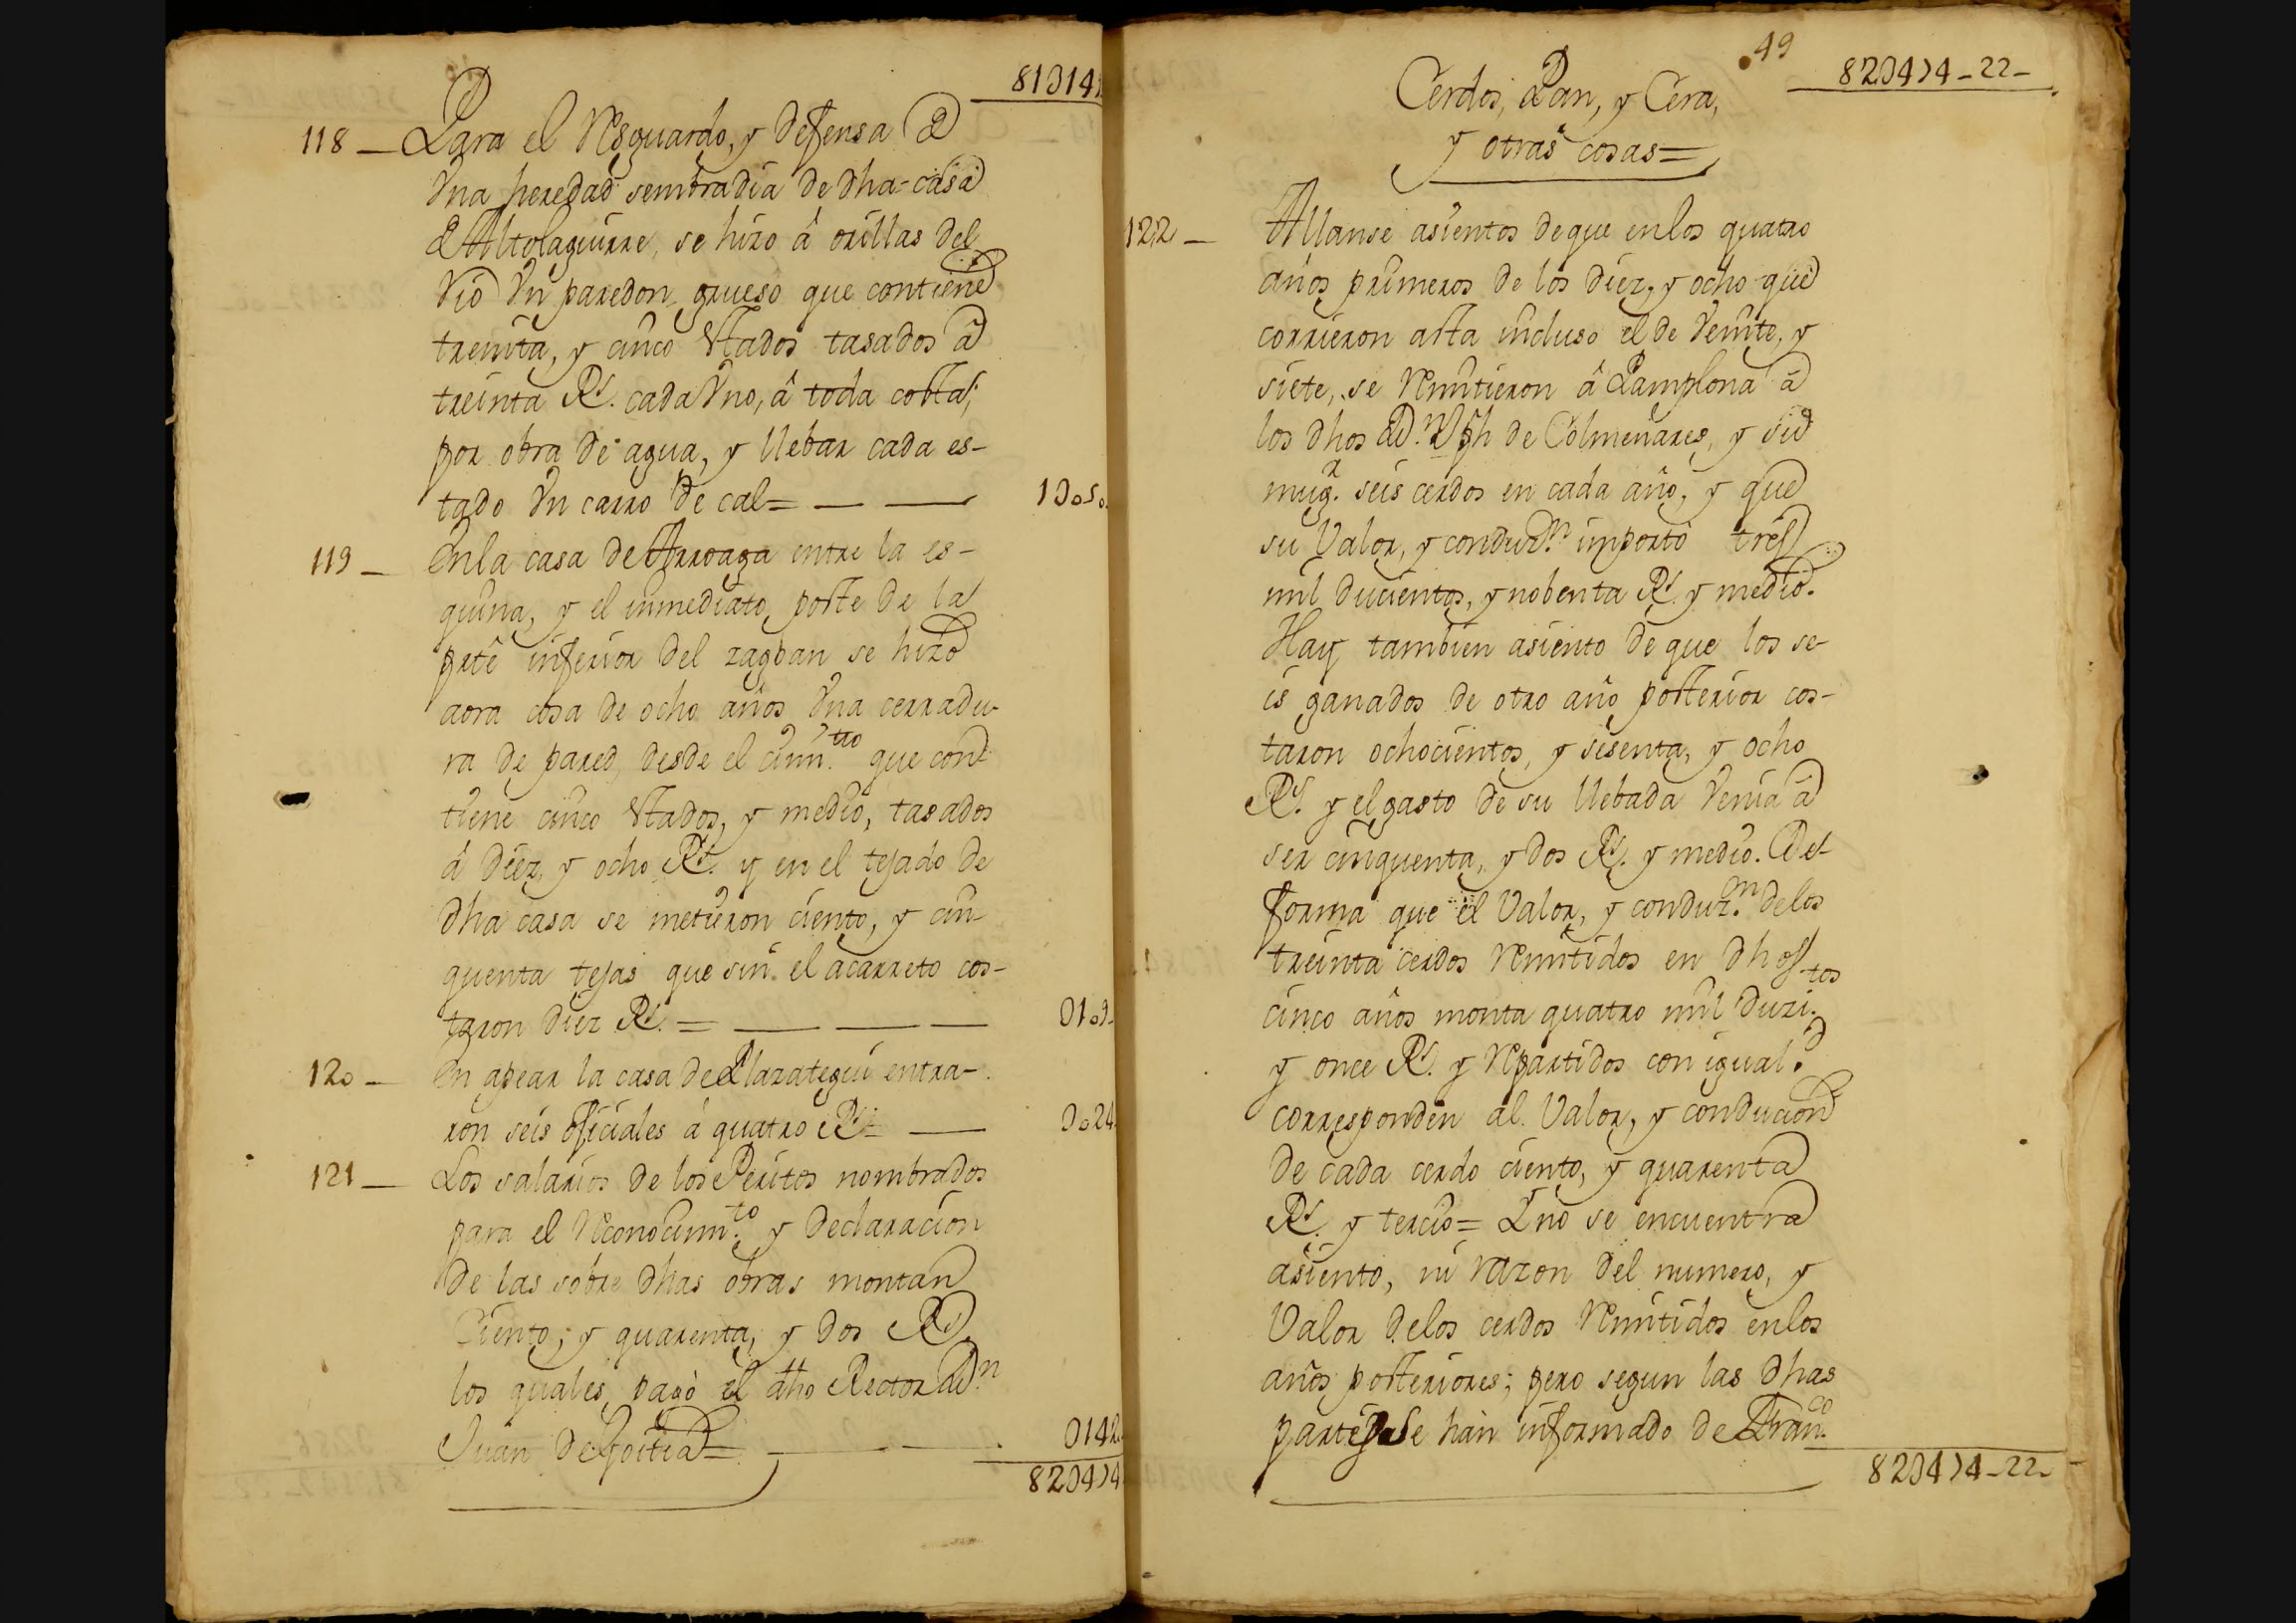 81314
118 – Para el Resguardo, y defensa de
Vna heredad sembradia de dha casa
de Altolaguirre, se hizo â orillas del
Rio Vn paredon grueso que contiene
treinta, y cinco Estados tasados â
treinta Rs. cada Vno, â toda costa;
por obra de agua, y llebar cada es-
tado Vn carro de cal= — — 1Do5o
119 – En la casa de Arroaga entre la es-
quina, y el inmediato poste de la
prtê inferior del zaguan se hizo
aora cosa de ocho años Vna cerradu-
ra de pared, desde el cim.to que con
tiene cinco Estados, y medio, tasados
â diez, y ocho Rs. y en el tejado de
dha casa se metieron ciento, y cin
quenta tejas que sin el acarreto cos-
taron diez Rs. = — — — D1o9
12o – En apear la casa de Plazategui entra-
ron seis oficiales â quatro Rs= — Do24
121 – Los salarios de los Peritos nombrados
para el Reconocim.to y declaracion
de las sobre dhas obras montan
Ciento, y quarenta, y dos Rs.
los quales pagò el dho Rector Dn.
Juan de Goitia= — — D142
82D474
49
Cerdos, Pan, y Cera,
y otras cosas=
82D474-22-
122 – Allanse asientos de que en los quatro
años primeros de los diez, y ocho que
corrieron asta incluso el de Veinte, y
siete, se Remitieron â Pamplona â
los dhos Dn. Jph de Colmenares, y su
mugr. seis cerdos en cada año, y que
su Valor, y conducn. importò tres
mil ducientos, y nobenta Rs. y medio.
Hay tambien asiento de que los se-
is ganados de otro año posterior cos-
taron ochocientos, y sesenta, y ocho
Rs. y el gasto de su llebada Venia â
ser cinquenta, y dos Rs. y medio. De
forma que el Valor, y conduzn. delos
treinta cerdos Remitidos en dhos
cinco años monta quatro mil duzi.tos
y once Rs. y Repartidos con igual.d
corresponden al Valor, y conducion
de cada cerdo ciento, y quarenta
Rs. y tercio= Y no se encuentra
asiento, ni razon del numero, y
Valor delos cerdos Remitidos en los
años posteriores; pero segun las dhas
partes se hân informado de Fran.co
82D474-22-